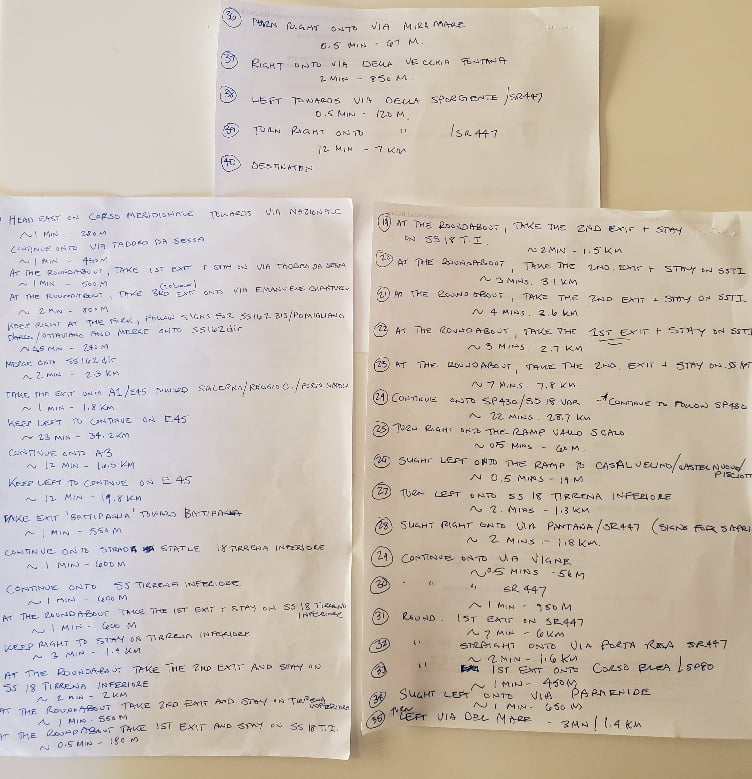 HEAD EAST ON CORSO MERIDIONALE TOWARDS VIA NAZIONALE
~1 MIN - 280M
CONTINUE ONTO VIA TADDEO DA SESSA
~1 MIN - 450M
AT THE ROUNDABOUT, TAKE 1ST EXIT + STAY ON VIA TADDEO DA SESSA
~1 MIN - 500M
AT THE ROUNDABOUT, TAKE 3RD EXIT ONTO VIA EMANUELE GIANTURCO
~2 MIN - 800M
KEEP RIGHT AT THE FORK, FOLLOW SIGNS FOR SS162 BIS/POMIGLIANO
DARCO/OTTAVIANO AND MERGE ONTO SS162dir
~45 MIN - 240M
MERGE ONTO SS162dir
~2 MIN - 2.3 KM
TAKE THE EXIT ONTO A1/E45 TOWARD SALERNO/REGGIO C./PORTO
~1 MIN - 1.8 KM
KEEP LEFT TO CONTINUE ON E.45
~23 MIN - 34.2KM
CONTINUE ONTO A3
~12 MIN - 16.5 KM
KEEP LEFT TO CONTINUE ON E 45
~12 MIN - 19.8 KM
TAKE EXIT 'BATTIPAGLIA' TOWARD BATTIPAGLIA
~1 MIN - 550M
CONTINUE ONTO STATLE 18 TIRRENA INFERIORE
~1 MIN - 600M
CONTINUE ONTO SS TIRRENA INFERIORE
~1 MIN - 600M
AT THE ROUNDABOUT TAKE THE 1ST EXIT + STAY ON SS 18 TIRRENA INFERIORE
~1 MIN - 600 M
KEEP RIGHT TO STAY ON TIRRENA INFERIORE
~3 MIN - 1.9 KM
AT THE ROUNDABOUT TAKE THE 2ND EXIT AND STAY ON
SS 18 TIRRENA INFERIORE
~2 MIN - 2KM
AT THE ROUNDABOUT TAKE 2ND EXIT AND STAY ON TIRRENA INFERIORE
~1 MIN. 550M
AT THE ROUNDABOUT TAKE 1ST EXIT AND STAY ON SS 18 T.I.
~0.5 MIN - 180 M
19 AT THE ROUNDABOUT, TAKE THE 2ND EXIT + STAY
ON SS 18 T.I.
~2 MIN - 1.5 KM
20 AT THE ROUNDABOUT, TAKE THE 2ND. EXIT + STAY ON SSTI
~3 MINS. 3.1 KM
21 AT THE ROUNDABOUT, TAKE THE 2ND EXIT + STAY ON SSTI.
~4 MINS. 3.6 KM
22 AT THE ROUNDABOUT, TAKE THE 1ST EXIT + STAY ON SSTI
~3 MINS 2.7 KM
23 AT THE ROUNDABOUT, TAKE THE 2ND. EXIT + STAY ON SS
~7 MINS. 7.8 KM
24 CONTINUE ONTO SP430/SS18 VAR - *CONTINUE TO FOLLOW SP430
~22 MINS. 28.7 KM
25 TURN RIGHT ONTO THE RAMP VALLO SCALO
~0.5 MIN - 60 M.
26 SLIGHT LEFT ONTO THE RAMP TO CASALVELINO/CASTELNUOVO/
~0.5 MIN - 19 M
27 TURN LEFT ONTO SS 18 TIRRENA INFERIORE
~2. MINS - 1.3 KM
28 SLIGHT RIGHT ONTO VIA PANTANA/SR447 (SIGNS FOR
~2 MINS - 1.8KM.
29 CONTINUE ONTO VIA VIGNE
~0.5 MINS - 56M
30 " " SR 447
~1 MIN - 950M
31 ROUND. 1ST EXIT ON SR447
~7 MIN - 6KM
32 " STRAIGHT ONTO VIA PORTA ROSA SR447
~2 MIN - 1.6 KM
33 " 1ST EXIT ONTO CORSO ELEA / SP80
~1 MIN - 450M
34 SLIGHT LEFT ONTO VIA PARMENIDE
~1 MIN - 650 M
35 TURN LEFT VIA DEL MARE - 3MIN / 1.4 KM
36 TURN RIGHT ONTO VIA MIRAMARE
0.5 MIN - 67 M.
37 RIGHT ONTO VIA DELLA VECCHIA FONTANA
2 MIN - 850 M.
38 LEFT TOWARDS VIA DELLA SPORGIENTE /SR447
0.5 MIN - 120 M.
39 TURN RIGHT ONTO " /SR447
12 MIN - 7 KM
40 DESTINATION